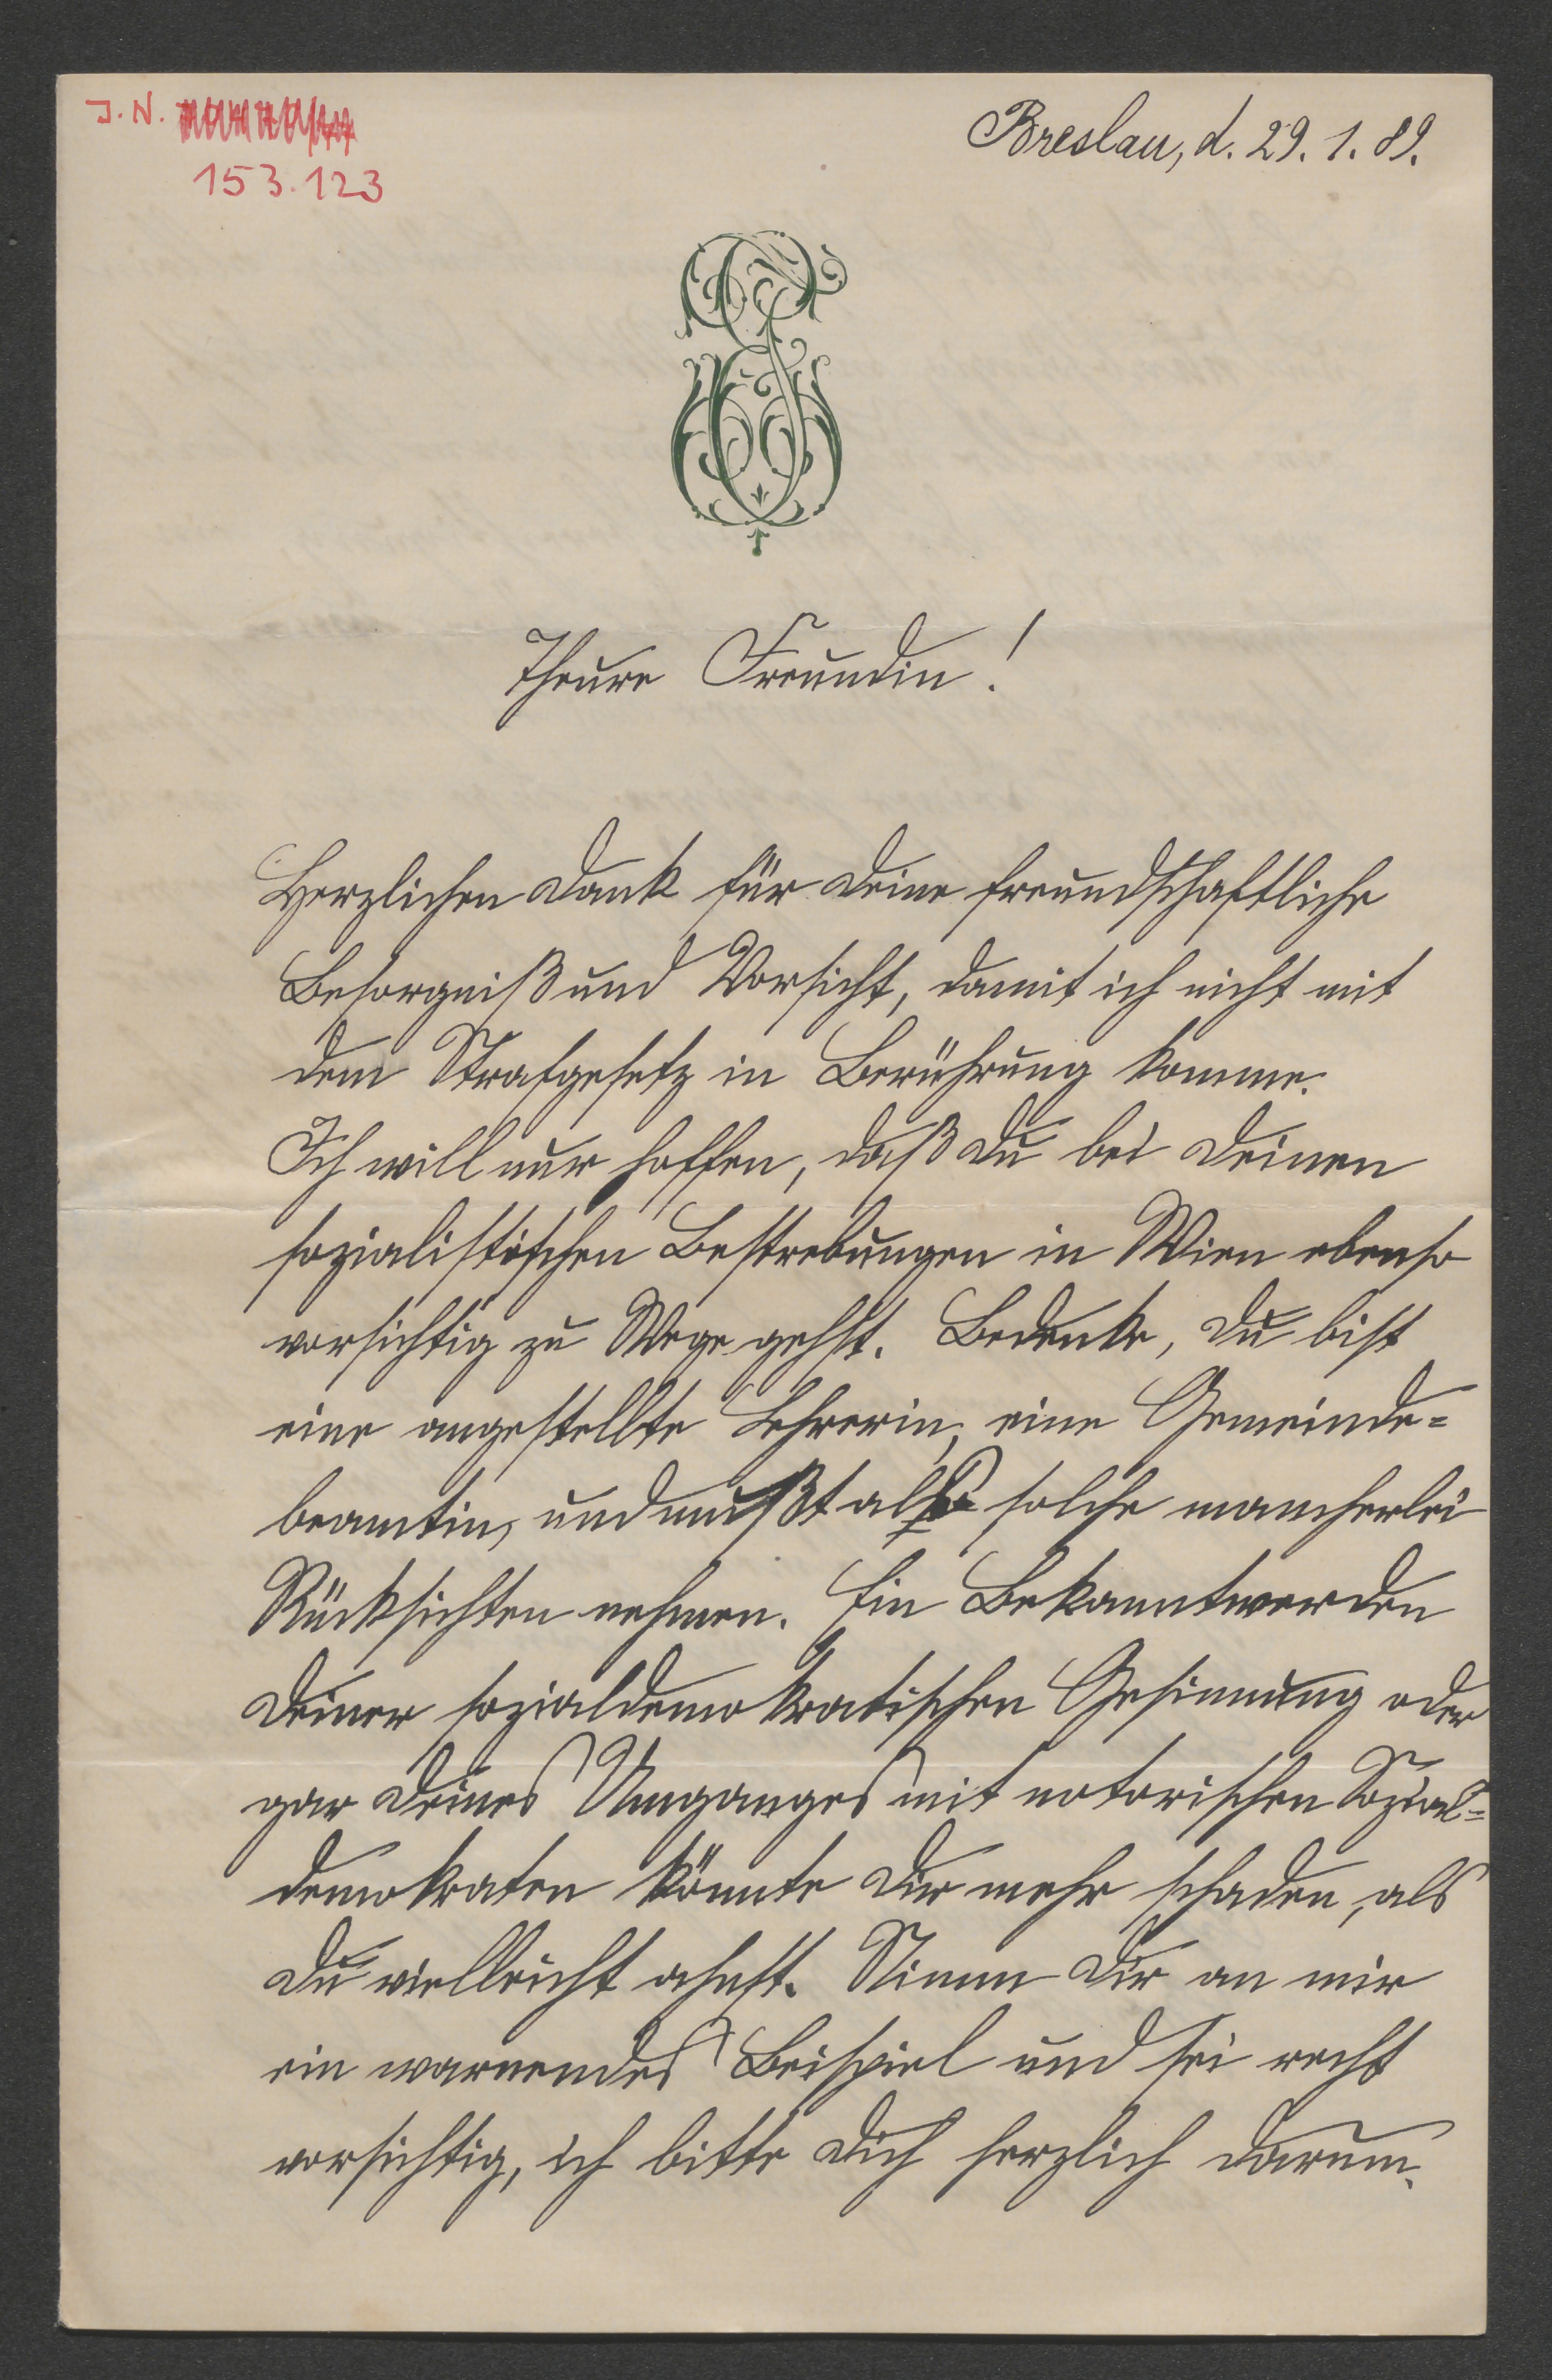 J. N.
153.123
Breslau, d. 29. 1. 89.
Theure Freundin!
Herzlichen Dank für Deine freundschaftliche
Besorgniß und Vorsicht, damit ich nicht mit
dem Strafgesetz in Berührung komme.
Ich will nur hoffen, daß Du bei Deinen
sozialistischen Bestrebungen in Wien ebenso
vorsichtig zu Wege gehst. Bedenke, Du bist
eine angestellte Lehrerin, eine Gemeinde=
beamtin, und mußt als solche mancherlei
Rücksichten nehmen. Ein Bekanntwerden
Deiner sozialdemokratischen Gesinnung oder
gar Deines Umganges mit notorischen Sozial=
demokraten könnte Dir mehr schaden, als
Du vielleicht ahnst. Nimm Dir an mir
ein warnendes Beispiel und sei recht
vorsichtig, ich bitte Dich herzlich darum.